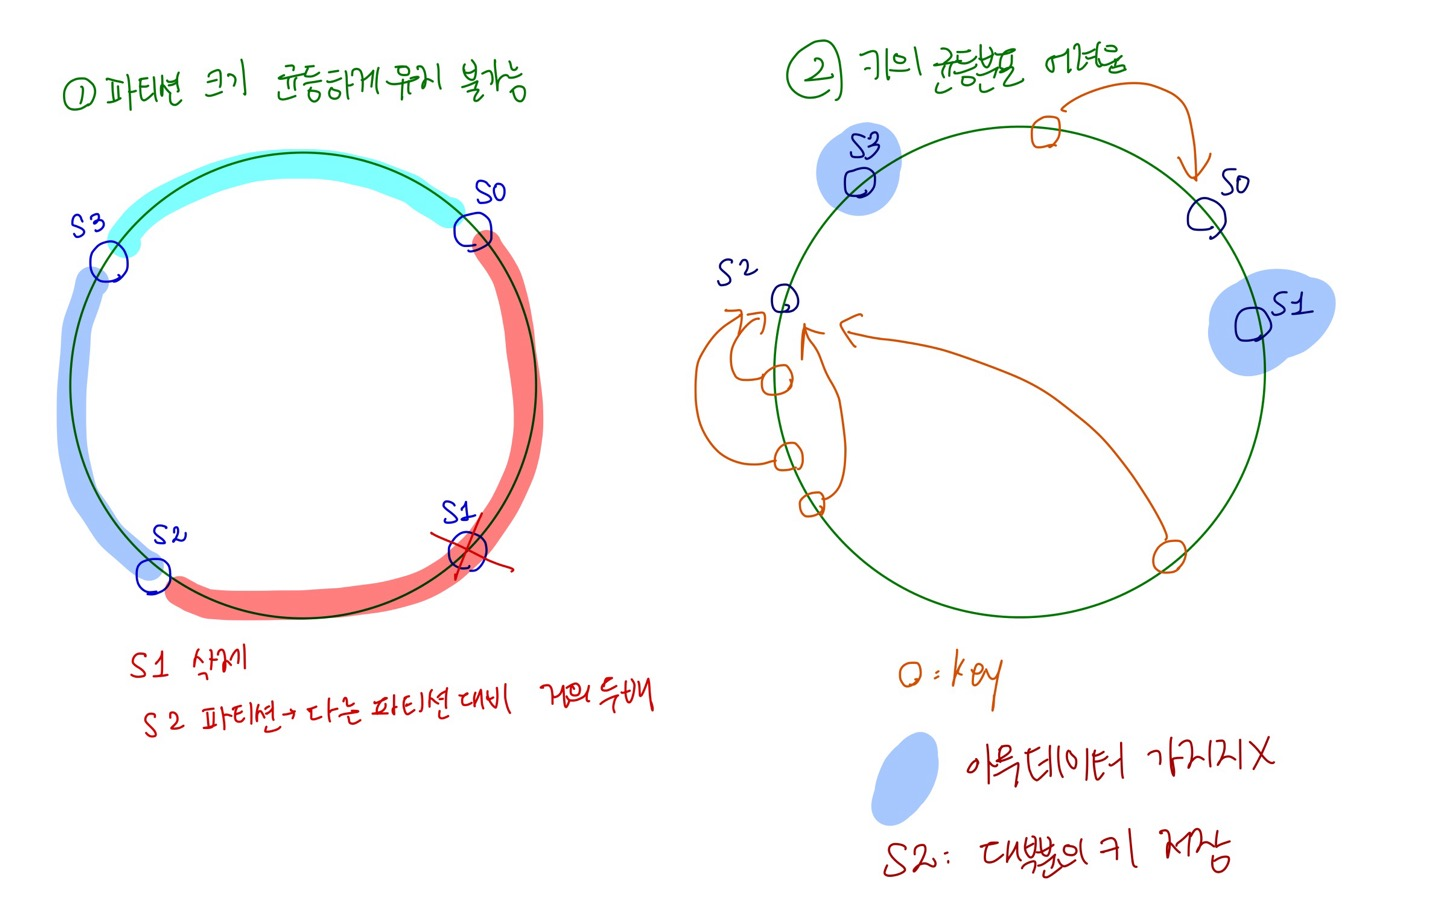 ① 파티션 크기 균등하게 유지 불가능
S0
S3
S1
S2
S1 삭제
S2 파티션→다른 파티션 대비 거의 두배
② 키의 균등분포 어려움
S3
S0
S2
S1
O : key
아무데이터 가지지X
S2 : 대부분의 키 저장